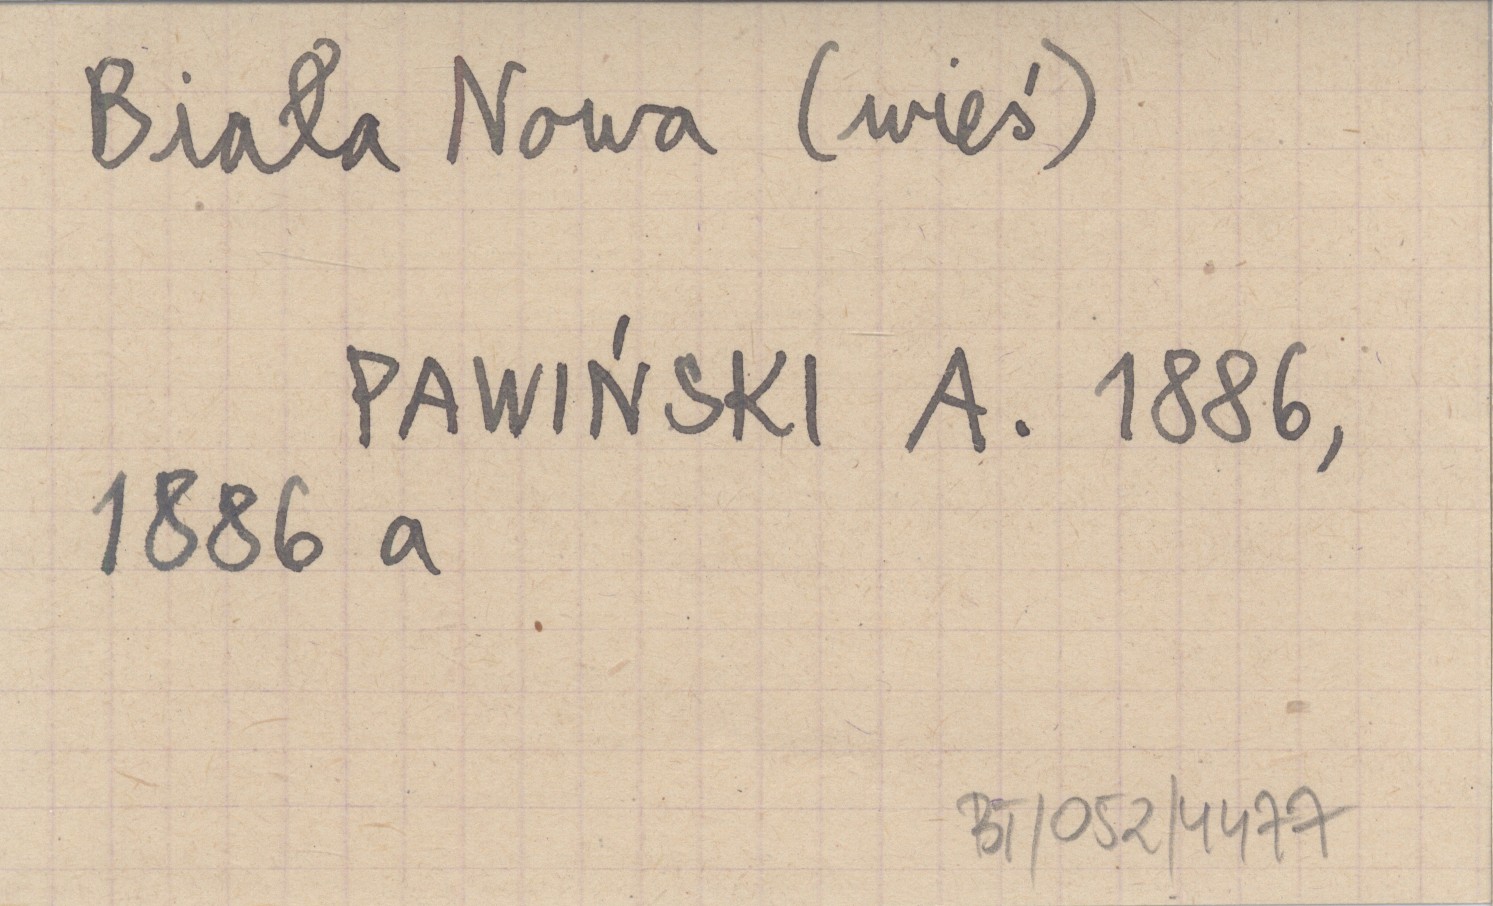 Biała Nowa (wieś)
PAWIŃSKI A. 1886,
1886 a
BT/052/4477